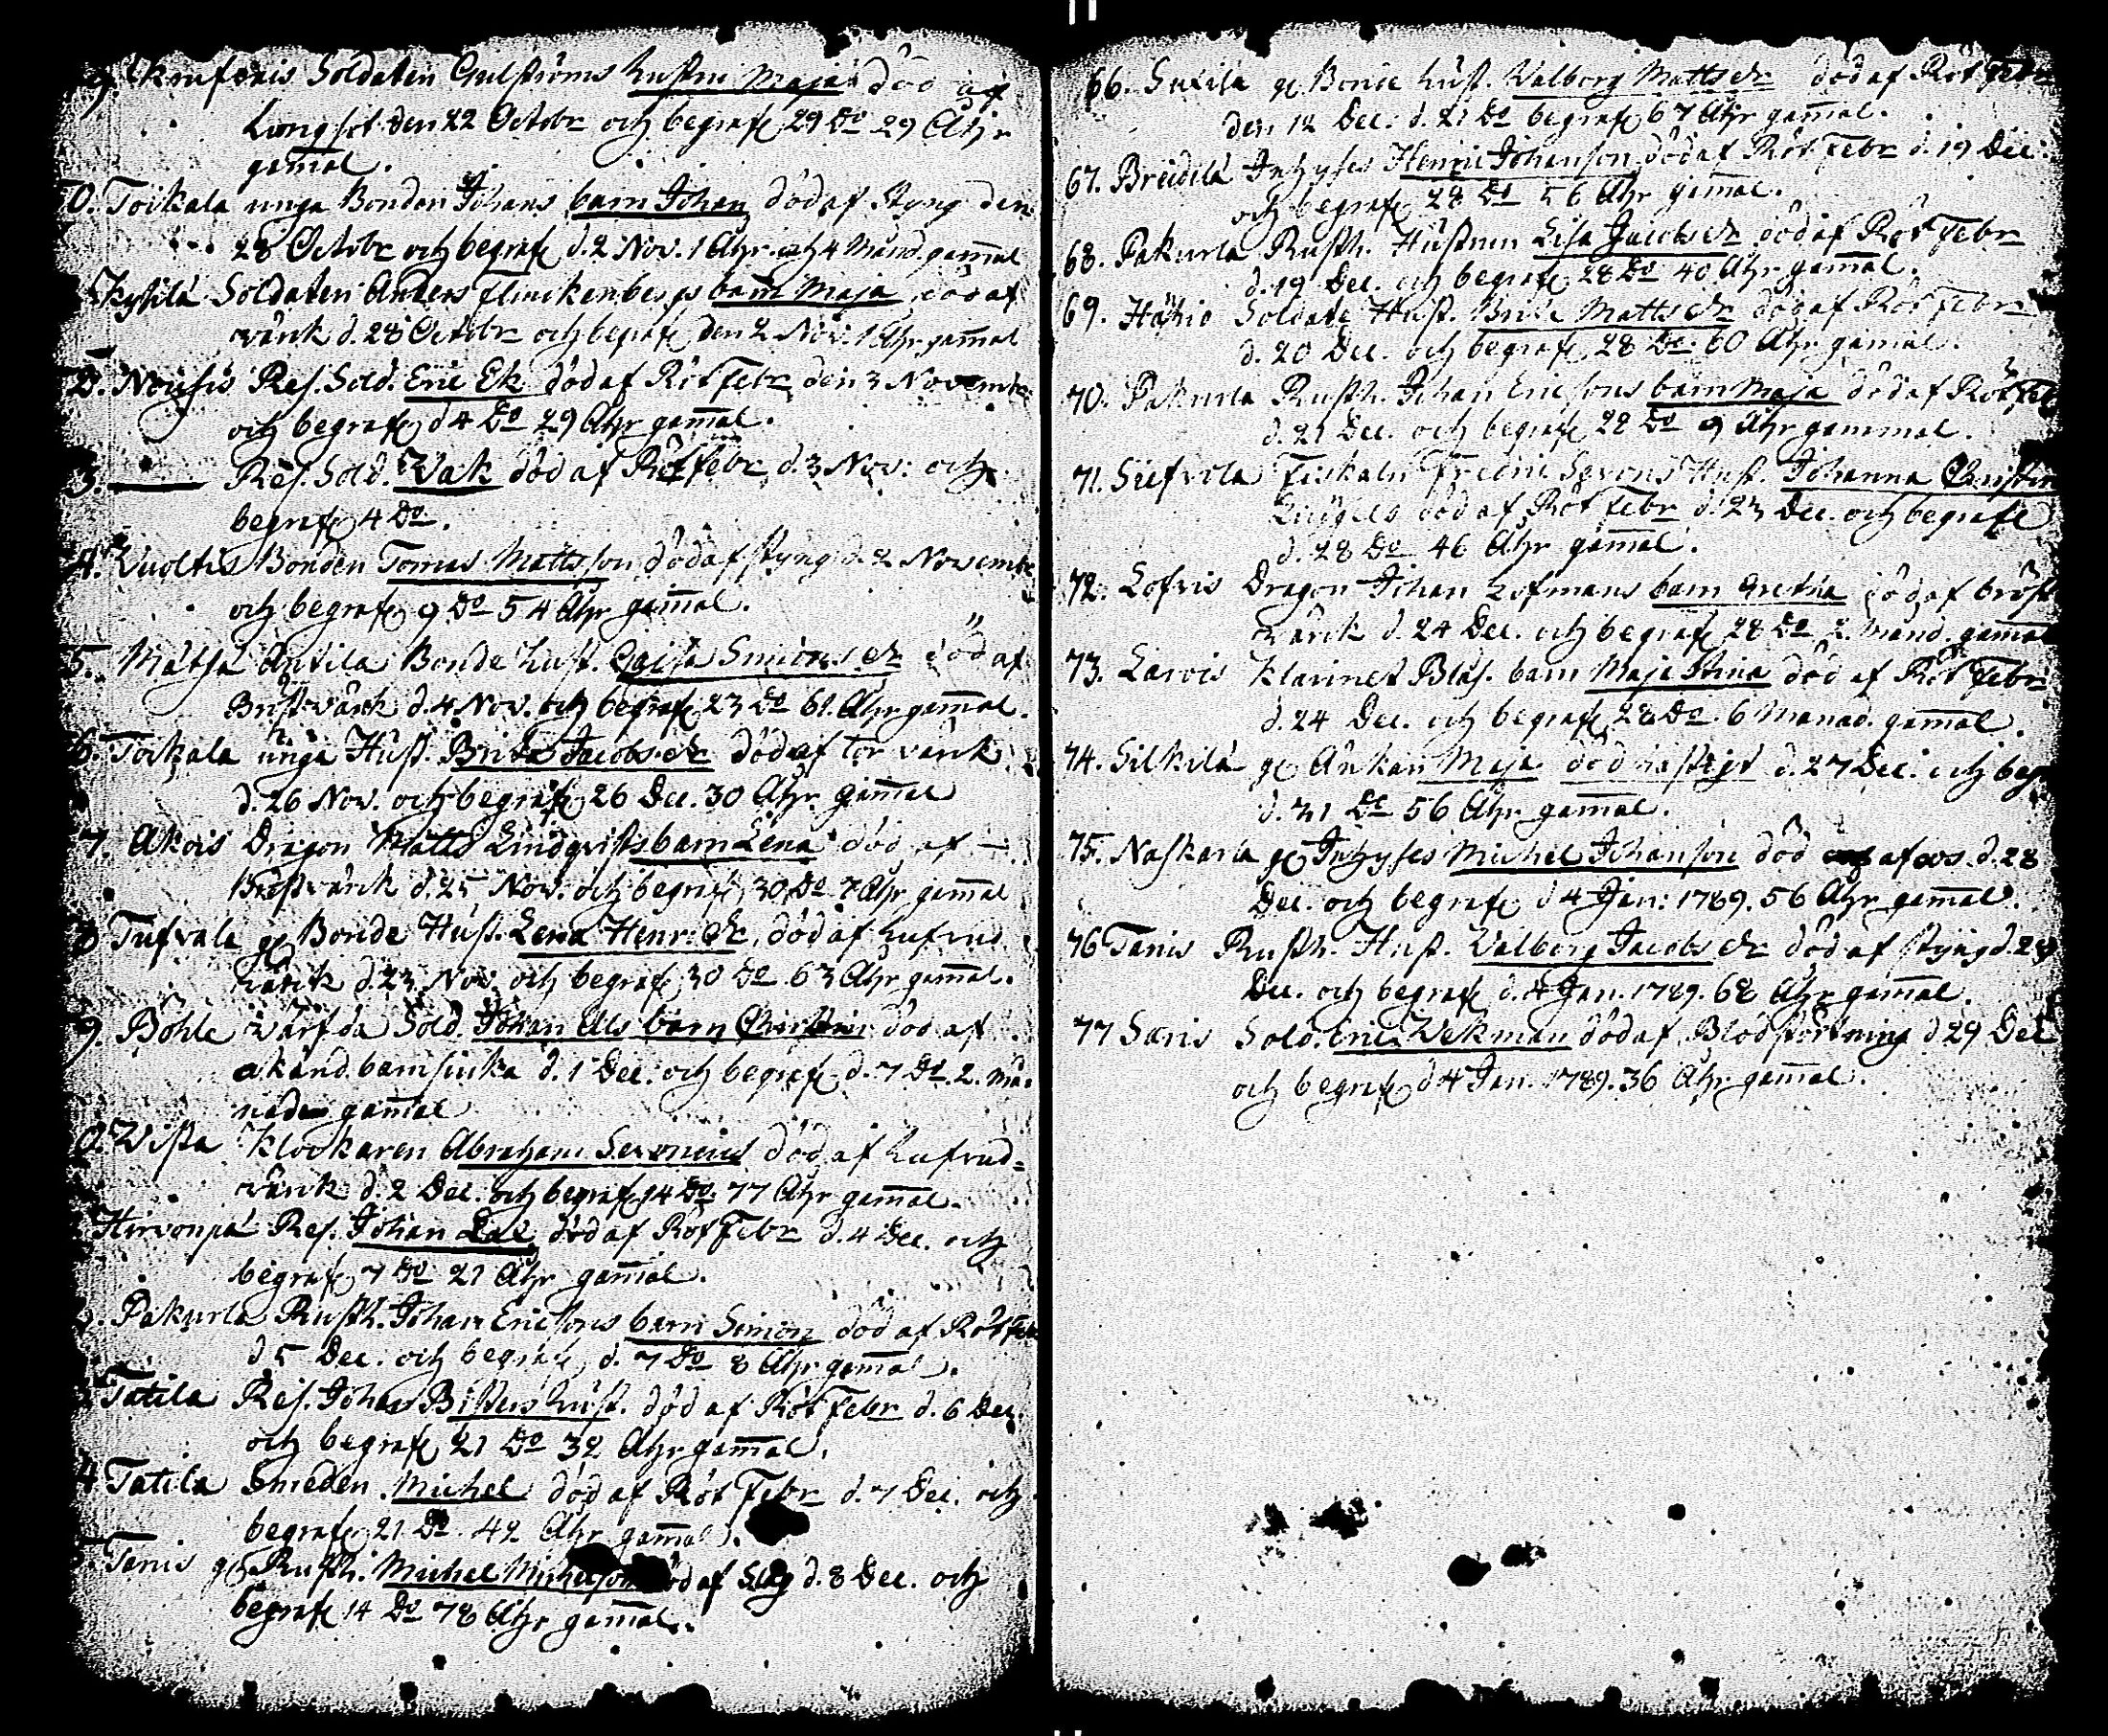 9. Soldaten Gulströms hustru Maja död af
Lungsot den 22 Octobr och begrafs 29 Do 29 Åhr
gamal.
0. Toikala unga Bonden Johans barn Johan död af styng den
28 Octobr och begrafs d. 2 Nov. 1 Åhr och 4 Månd gamal
Kyfilä Soldaten Anders Flinckenbergs barn Maja död af
värk d. 28 Octobr och begrafs den 2 Nov. 1 Åhr gamal
2. Nousis Res. Sold. Eric Ek död af Röt Febr den 3 Novembr
och begrafs d 4 Do 29 Åhr gamal.
3. Res. Sold. Wak död af Röt febr d. 3 Nov: och
begrafs 4 Do.
4. Bonden Tomas Mattsson död af styng d. 2 Novembr
och begrafs 9 Do 54 Åhr gamal.
5. Antila Bonde hust. Caisa Simons dr död af
Bröstvärk d. 4 Nov. och begrafs 23 Do 61 Åhr gamal.
6. Toikala unga Hust. Brita Jacobs dr död af tor värk
d. 26 Nov. och begrafs 26 Dec. 30 Åhr gamal
7. Akois Dragon Matts Lindqvists barn Lena död af
Bröstvärk d. 25 Nov. och begrafs 30 Do 7 Åhr gamal
8 Tufvala gl Bonde Hust. Lena Henr: dr, död af hufvud
värk d. 23 Nov. och begrafs 30 Do 63 Åhr gamal.
9. Böhle värfda Sold. Johan barn Christin död af
okänd barnsiuka d. 1 Dec. och begrafs d. 7 Do. 2. må-
nader gamal
0. Wista Klockaren Abraham Serenius död af hufvud=
värk d. 2 Dec. och begrafs 14 Do 77 Åhr gamal.
Hirvonpä Res. Johan död af Röt Febr d. 4 Dec. och
begrafs 7 Do 21 Åhr gamal.
Pakurla Rusth. Johan Ericsons barn Simon död af Röt febr
d 5 Dec. och begrafs d. 7 Do 8 Åhr gamal.
Tatila Res. Johan Bisters hust. död af Röt Febr d. 6 Dec.
och begrafs 21 Do 32 Åhr gamal.
4 Tatila Smeden Michel död af Röt Febr d. 7 Dec. och
begrafs 21 Do. 42 Åhr gamal.
5. Tanis gl Rusth. Michel Michelson död af Slag d. 8 Dec. och
begrafs 14 Do 78 Åhr gamal.
66. Suxila gl Bonde hust. Walborg Matts dr död af Röt Febr
den 12 Dec. d. 21 Do begrafs 67 Åhr gamal.
67. Breidilä Inhyses Henric Johanson död af Röt Febr d. 19 Dec.
och begrafs 28 Do 56 Åhr gamal.
68. Pakurla Rusth. Hustrun Lisa Jacobs dr död af Röt Febr
d. 19 Dec. och begrafs 28 Do 40 Åhr gamal.
69. Soldate Hust. Brita Matts dr död af Röt Febr
d. 20 Dec. och begrafs 28 Do. 60 Åhr gamal.
70. Pakurla Rusth. Johan Ericsons barn Maja död af Röt Feb
d. 21 Dec. och begrafs 28 Do 9 Åhr gammal.
71. Siefvola Fiskaln Hust. Johanna Christin
död af Röt Febr d. 23 Dec. och begrafs
d. 28 Do 46 Åhr gamal.
72. Lofvis Dragon Johan Lofmans barn Gretha död af bröst
värck d. 24 Dec. och begrafs 28 Do 2. Månd. gamal
73. Larois Klarinet Blås. barn Maja Stina död af Röt Febr
d. 24 Dec. och begrafs 28 Do. 6 Månad. gamal.
74. Silkilä gl Änkan Maja död hastigt d. 27 Dec. och begr
d. 31 Do 56 Åhr gamal.
75. Naskarla gl Inhyses Michel Johanson död af d. 28
Dec. och begrafs d 4 Jan: 1789. 56 Åhr gamal.
76 Tanis Rusth. Hust. Walborg Jacobs dr död af styng d. 28
Dec. och begrafs d. 4 Jan. 1789. 68 Åhr gamal.
77 Saris Sold. Eric Wekman död af Blodstörtning d 29 Dec
och begrafs d 4 Jan. 1789. 36 Åhr gamal.